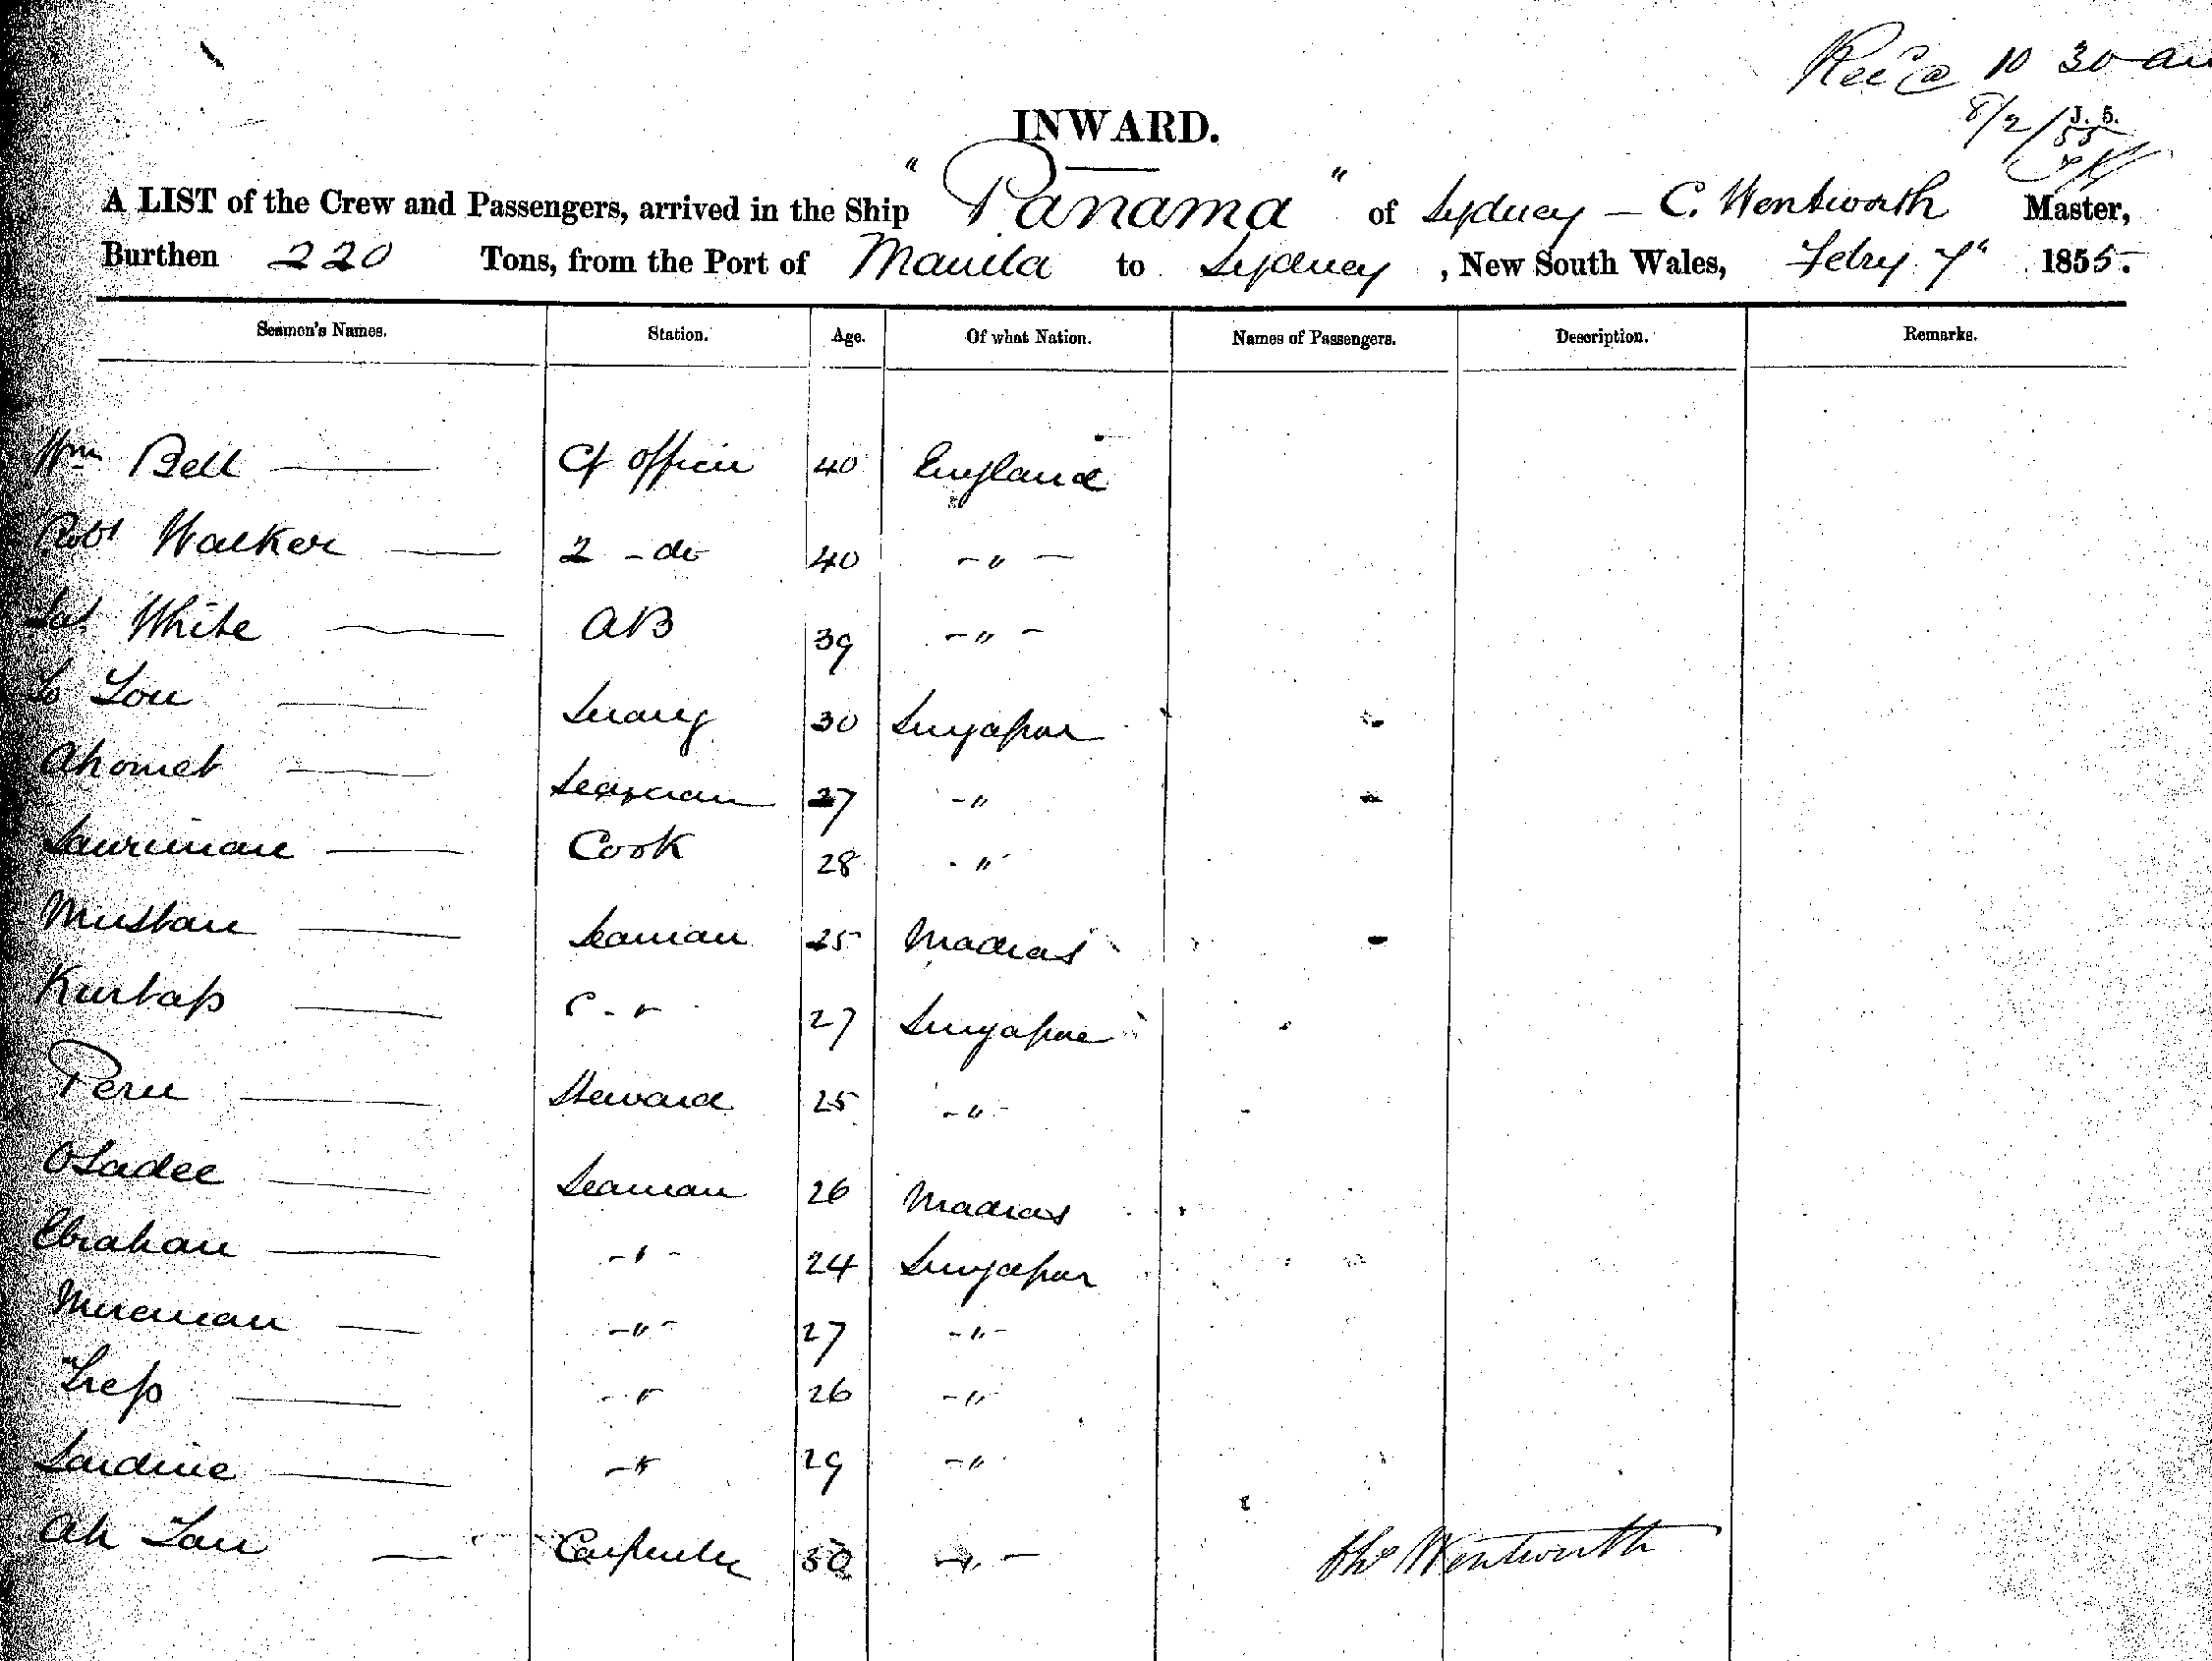 Recd @ 10 30 am
8/2/55
J. 5.
INWARD.
A LIST of the Crew and Passengers, arrived in the Ship "Panama" of Sydney – C. Wentworth Master,
Burthen 220 Tons, from the Port of Manila to Sydney, New South Wales, Febry 7" 1855.
Seamen's Names. Station. Age. Of what Nation. Names of Passengers. Description. Remarks.
Wm Bell — Cf Officer 40 England
Robt Walker — 2 - do 40 - " -
White — AB 39 - " -
Lou — 30 Singapore
Ahomet — Seaman 27 - "
Sauriman — Cook 28 - "
Mustan — Seaman 25 Madras
Kurtass — 27 Singapore
Peru — Steward 25 - " -
Osadee — Seaman 26 Madras
Ebrahan — - " - 24 Singapore
— - " - 27 - " -
— - " 26 - "
Sardine — - " 29 - "
Ah Tan — Carpenter 30 - " -
Chs Wentworth